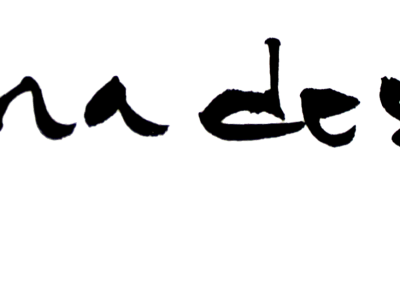 na des